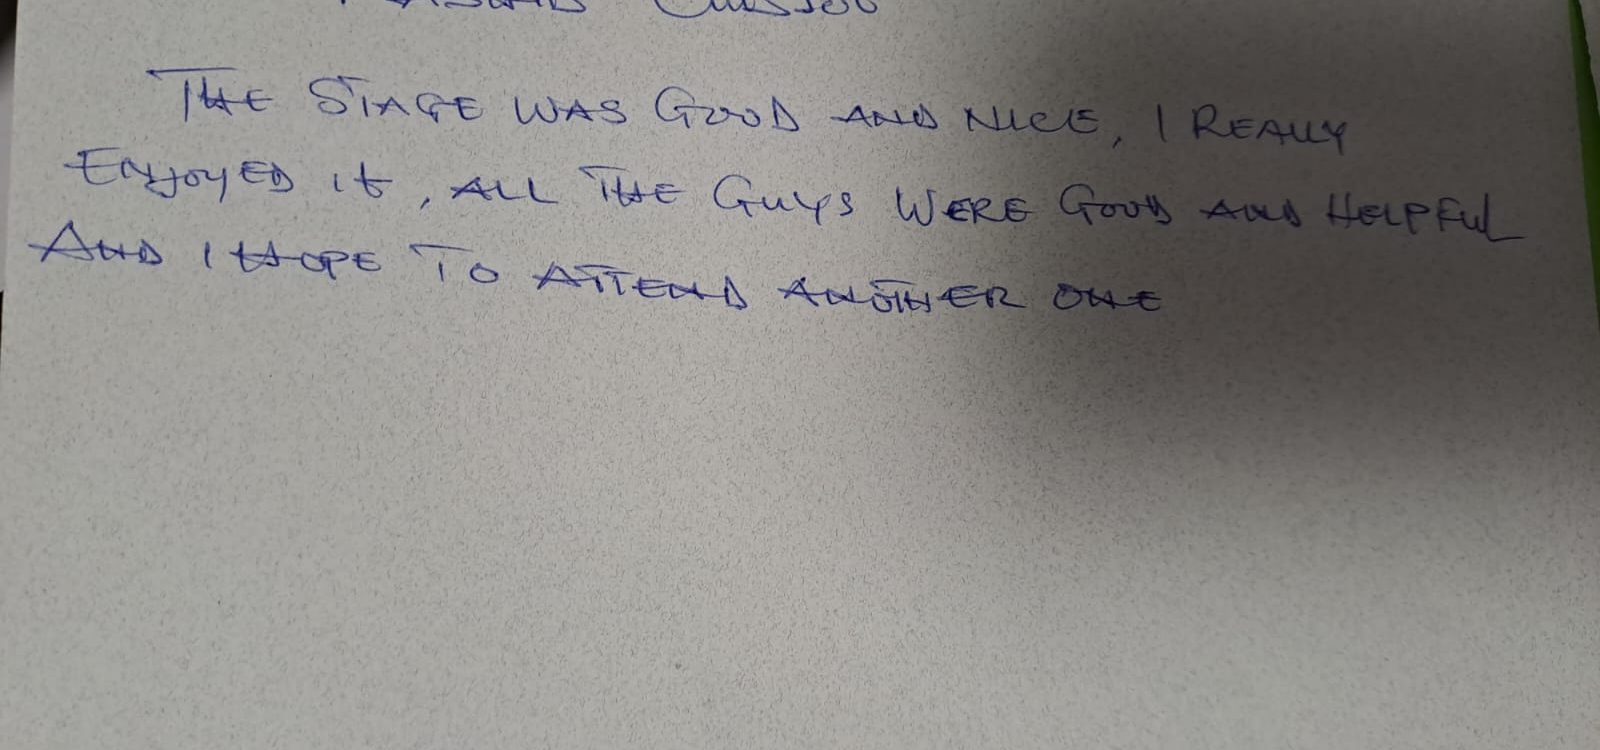 THE STAGE WAS GOOD AND NICE, I REALLY
ENJOYED It, ALL THE GUYS WERE GOOD AND HELPFUL
AND I HOPE TO ATTEND ANOTHER ONE